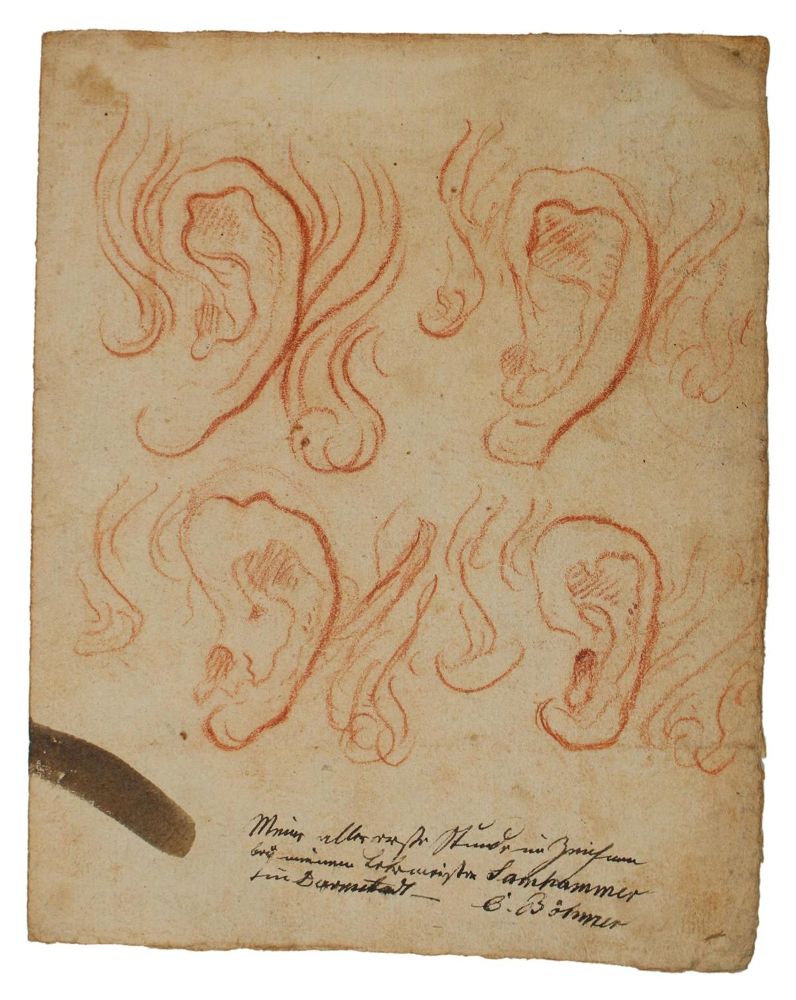 Meine aller erste Stunde im Zeichnen
bey meinem Lehrmeister Samhammer
in Darmstadt —
C. Böhmer